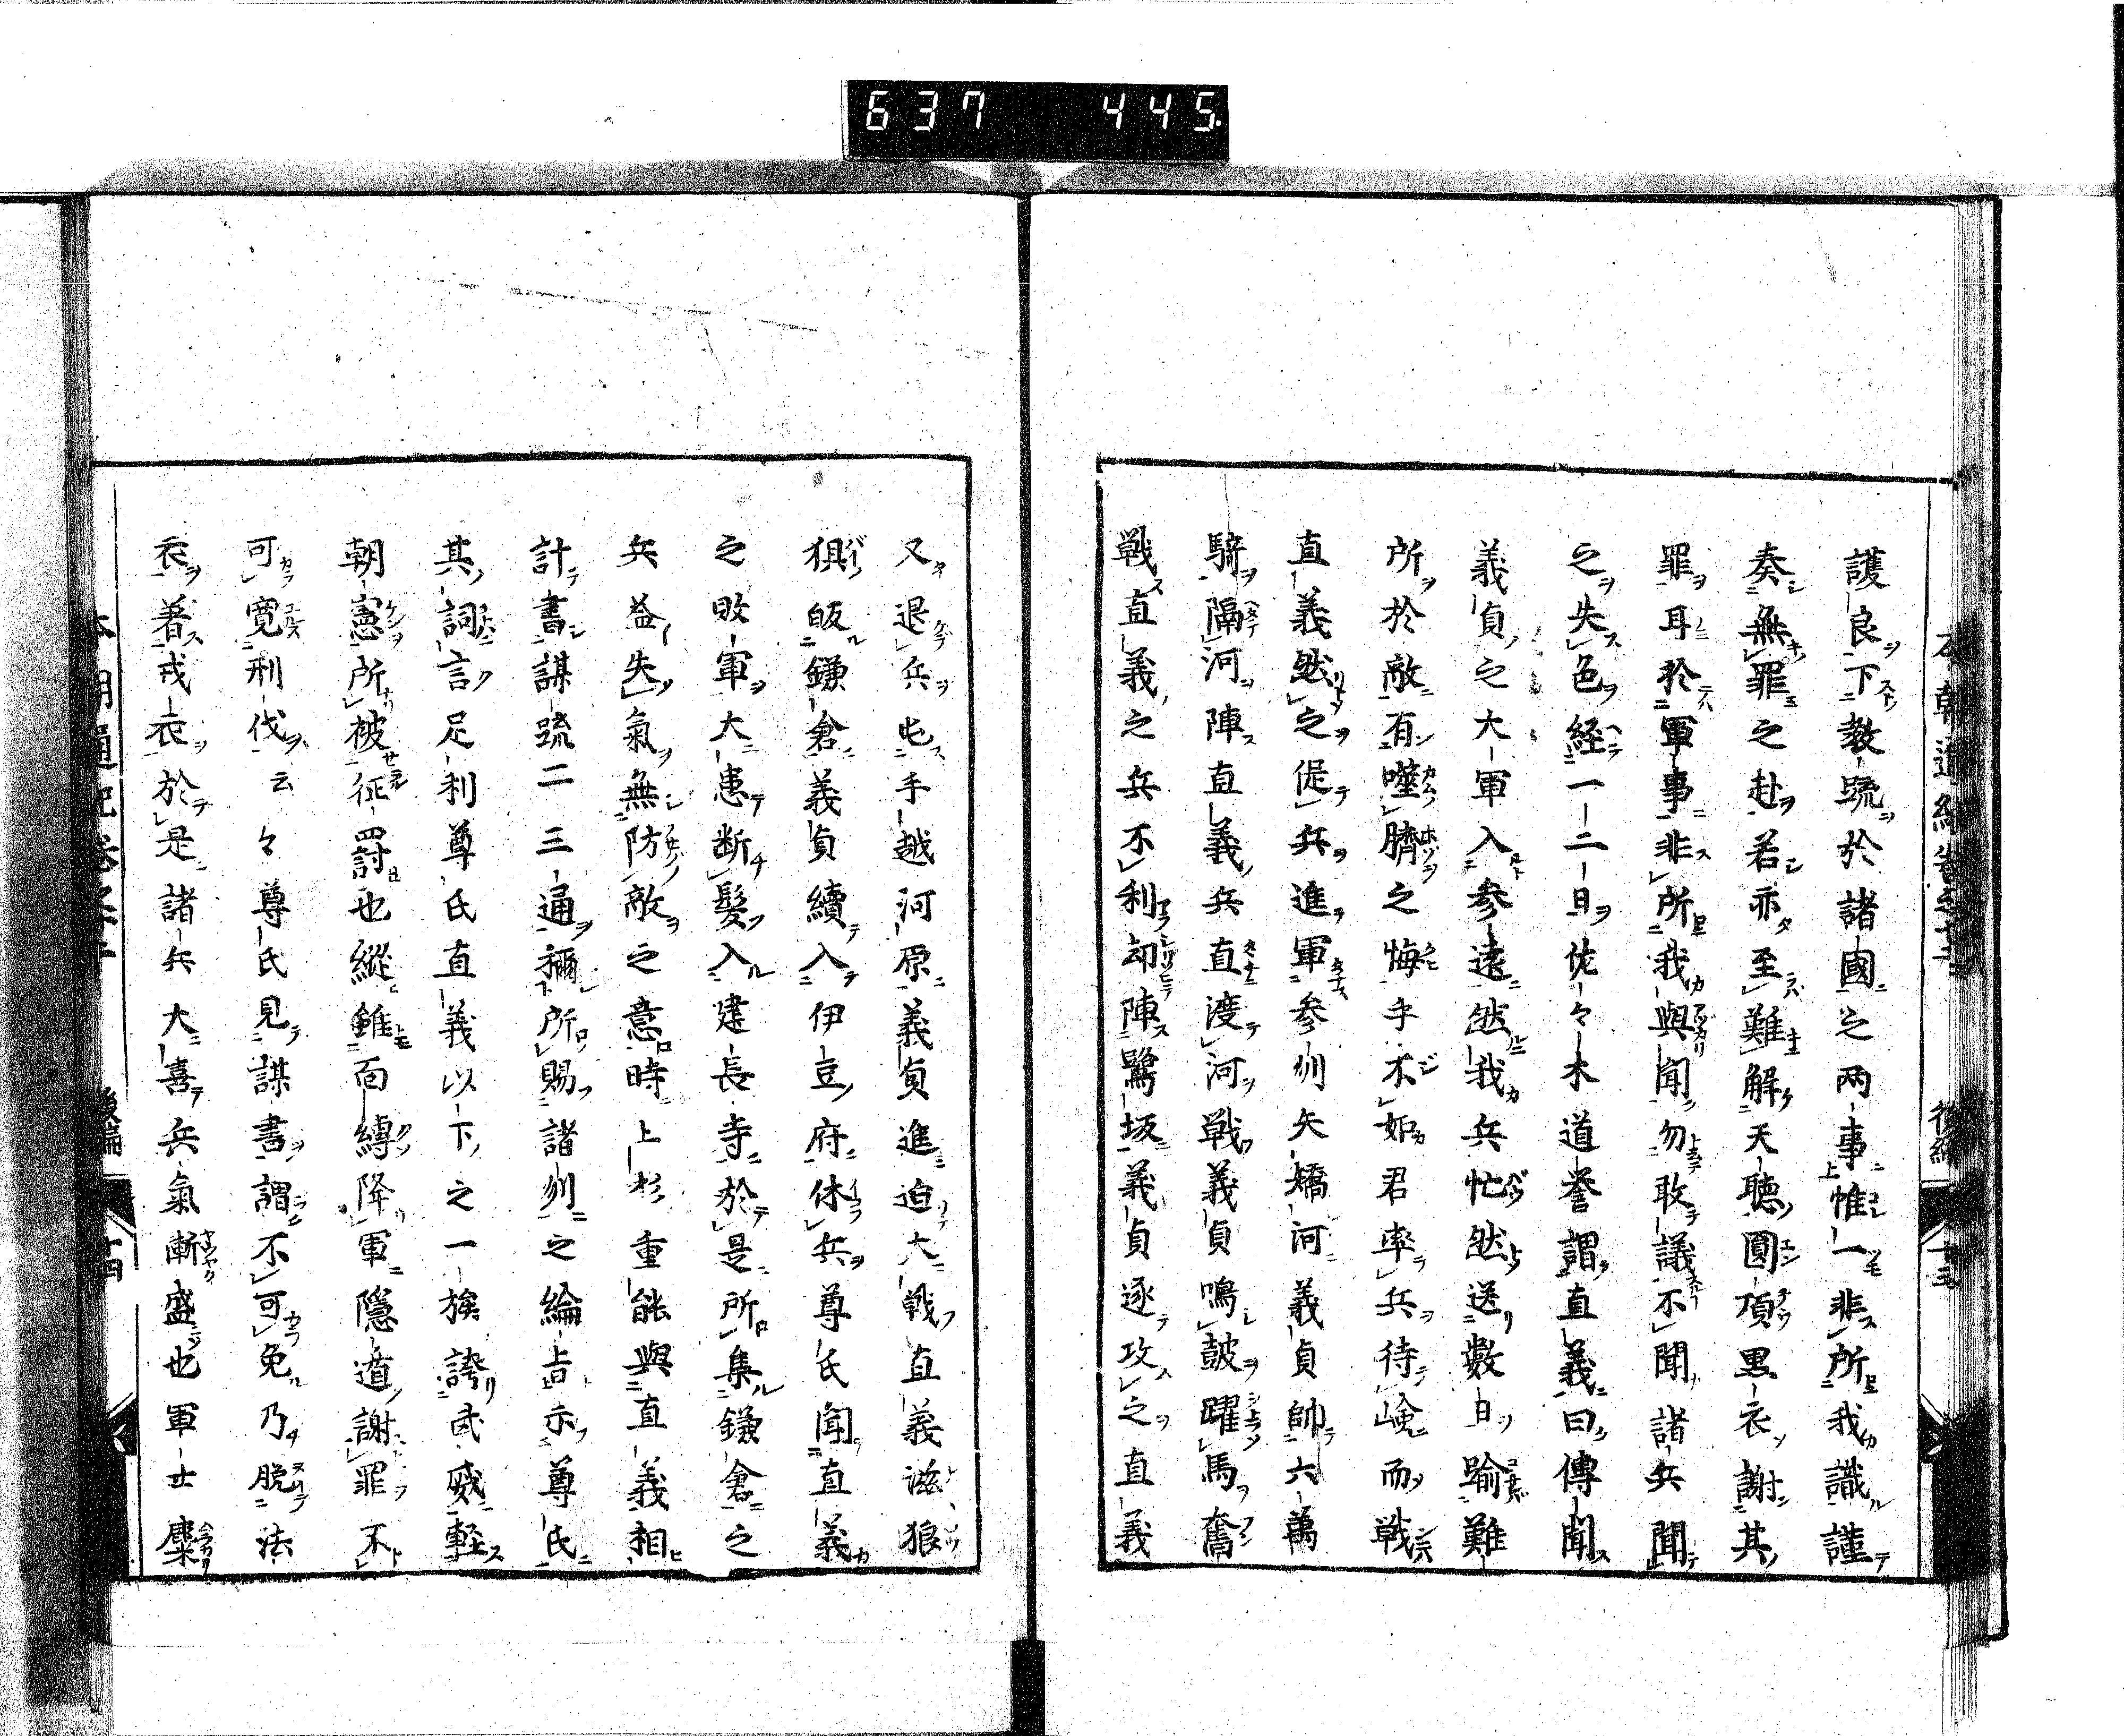 637 445
護良下教疏於諸國之両事惟一非所我識謹
奏無罪之赴若亦至難解天聴圓頂黒衣謝其
罪耳於軍事非所我與聞勿敢議不聞諸兵聞
之失色経一二日佐々木道誉謂直義曰傳聞
義貞之大軍入参遠然我兵忙然送數日踰難
所於敵有噬臍之悔乎不如君率兵待嶮而戦
直義然之促兵進軍参刕矢矯河義貞帥六萬
騎隔河陣直義兵直渡河戦義貞鳴皷躍馬奮
戦直義之兵不利却陣鷺坂義貞逐攻之直義
又退兵屯手越河原義貞進迫大戦直義滋狼
狽皈鎌倉義貞續入伊豆府休兵尊氏聞直義
之敗軍大患断髮入建長寺於是所集鎌倉之
兵益失氣無防敵之意時上杉重能與直義相
計書謀疏二三通稱所賜諸刕之綸旨示尊氏
其詞言足利尊氏直義以下之一族誇武威軽
朝憲所被征罸也縦雖面縛降軍隱道謝罪不
可寛刑伐云々尊氏見謀書謂不可免乃脱法
衣著戎衣於是諸兵大喜兵氣漸盛也軍士麋
後編 十三
本朝通紀巻 後編 十四